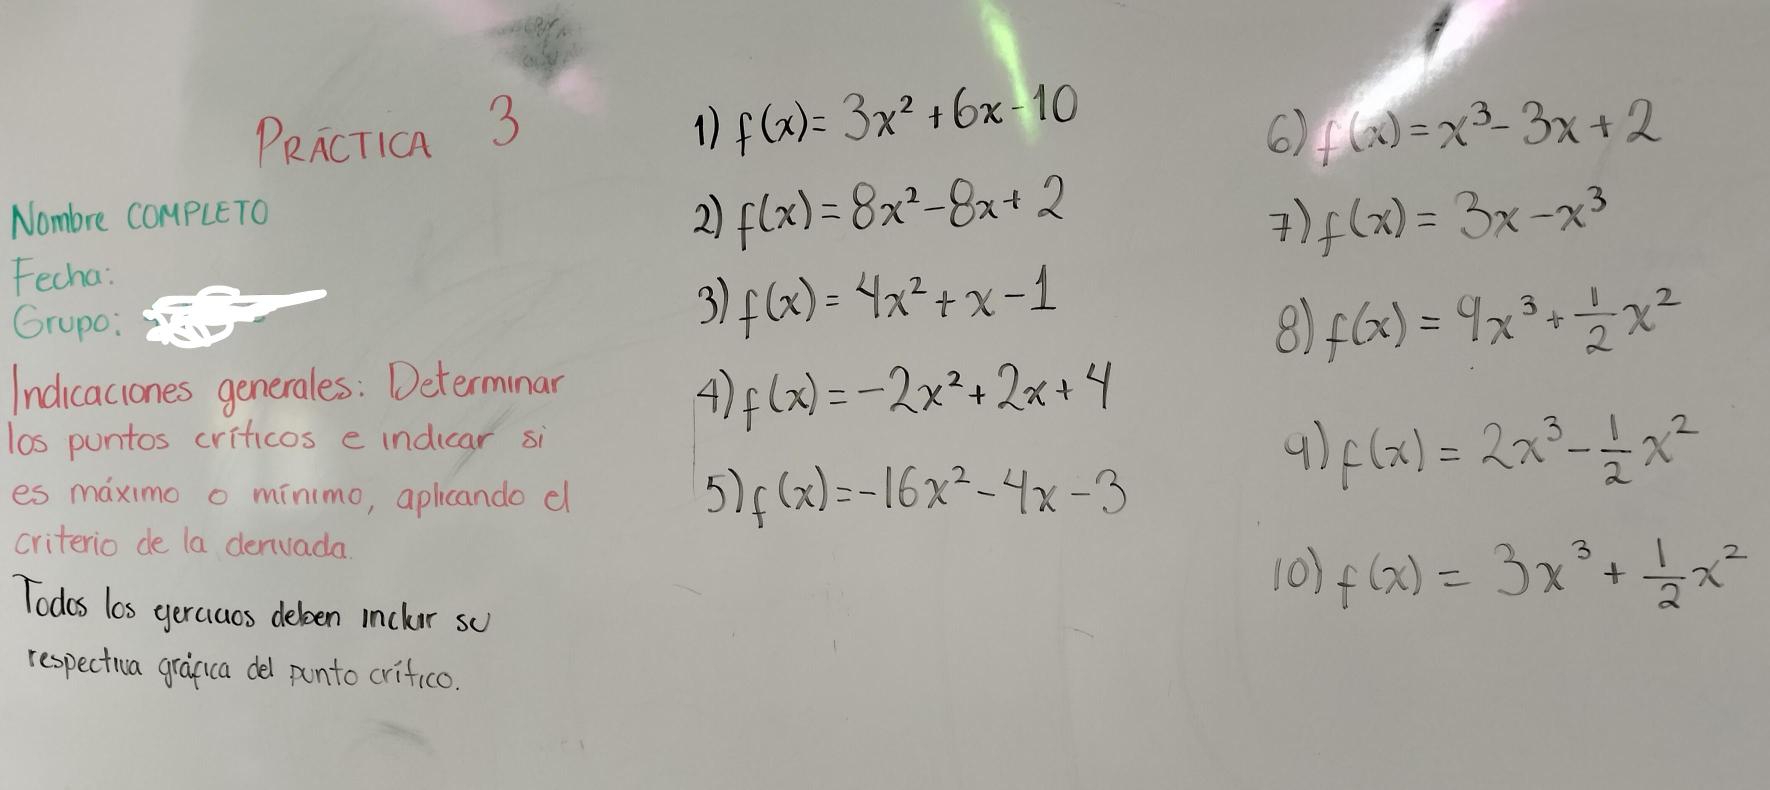 PRÁCTICA 3
Nombre COMPLETO
Fecha:
Grupo:
Indicaciones generales: Determinar
los puntos críticos e indicar si
es máximo o mínimo, aplicando el
criterio de la derivada.
Todos los ejercicios deben incluir su
respectiva gráfica del punto crítico.
1) f(x)= 3x² + 6x - 10
2) f(x) = 8x² - 8x + 2
3) f(x) = 4x² + x - 1
4) f(x) = -2x² + 2x + 4
5) f(x) = -16x² - 4x - 3
6) f(x) = x³ - 3x + 2
7) f(x) = 3x - x³
8) f(x) = 9x³ + 1/2 x²
9) f(x) = 2x³ - 1/2 x²
10) f(x) = 3x³ + 1/2 x²